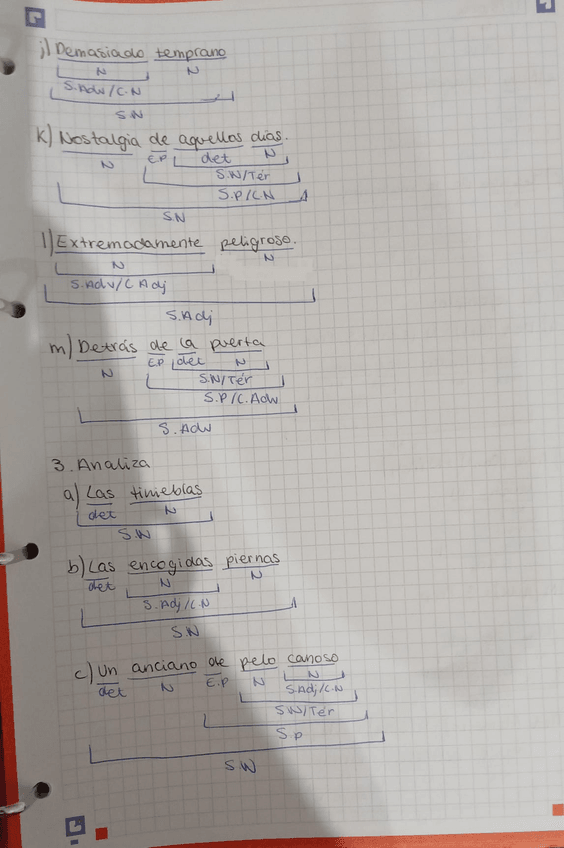 j) Demasiado temprano
N N
S.Adv/C.N
S.N
K) Nostalgia de aquellos días.
N E.P det N
S.N/Tér
S.P/C.N
S.N
l) Extremadamente peligroso.
N N
S.Adv/C Adj
S.Adj
m) Detrás de la puerta
N E.P det N
S.N/Tér
S.P/C.Adv
S.Adv
3. Analiza
a) Las tinieblas
det N
S.N
b) Las encogidas piernas
det N N
S.Adj/C.N
S.N
c) Un anciano de pelo canoso
det N E.P N N
S.Adj/C.N
S.N/Tér
S.p
S.N